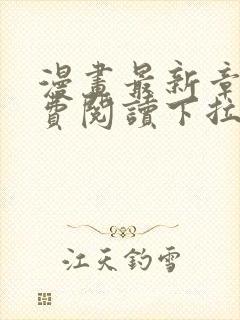 漫畫最新章
費閱讀下拉
江天釣雪